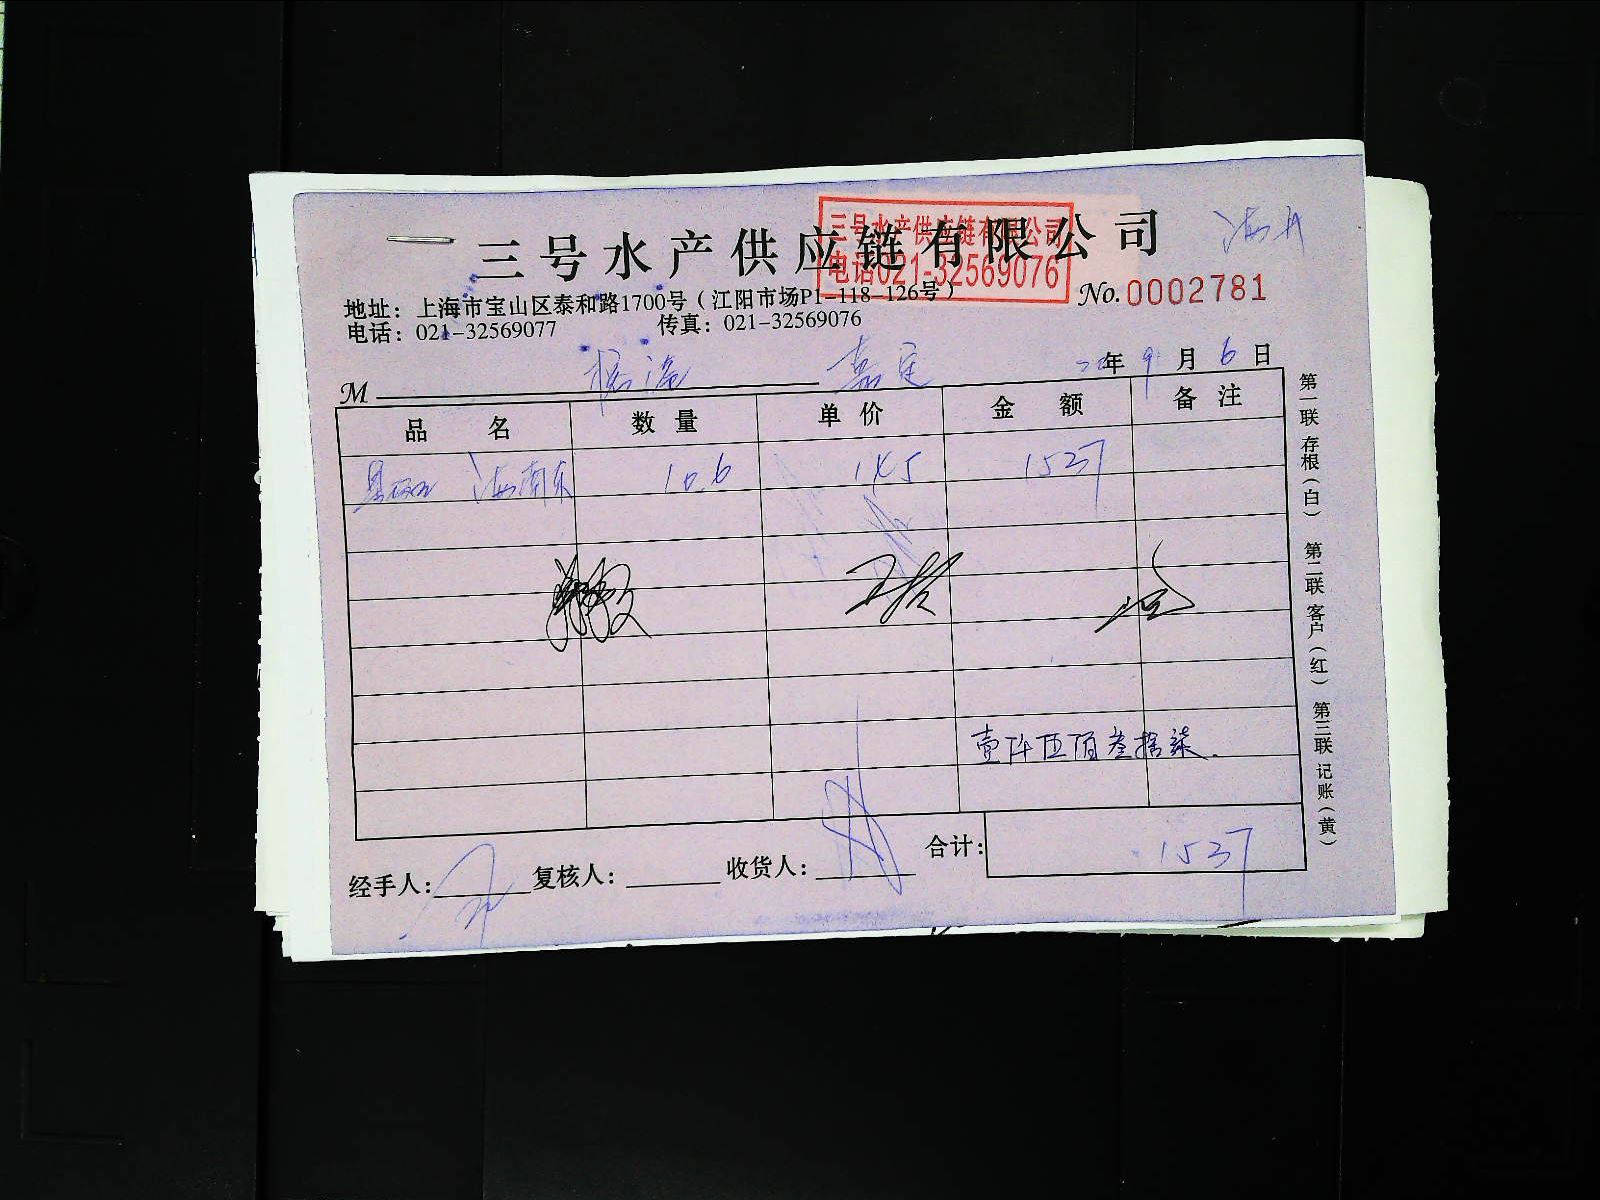 三号水产供应链有限公司
三号水产供应链有限公司
电话021-32569076
地址：上海市宝山区泰和路1700号（江阳市场P1-118-126号）
No.0002781
电话：021-32569077 传真：021-32569076
M 嘉定 年 9 月 6 日
品 名 数 量 单 价 金 额 备 注
海南东 10.6 145 1537
壹仟伍佰叁拾柒
合计： 1537
经手人： 复核人： 收货人：
第一联 存根（白） 第二联 客户（红） 第三联 记账（黄）